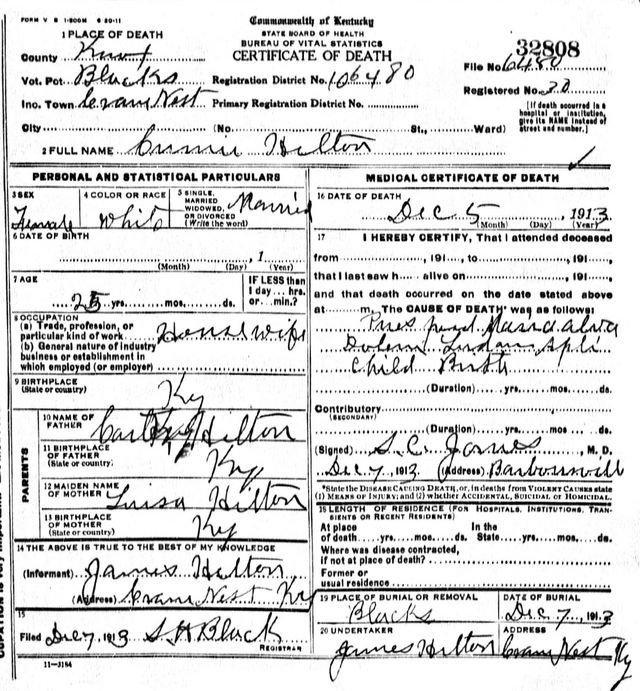 FORM V S 1-500M 6 20-11
Commonwealth of Kentucky
STATE BOARD OF HEALTH
BUREAU OF VITAL STATISTICS
CERTIFICATE OF DEATH
32808
1 PLACE OF DEATH
County Knox
Vot. Pct Blacks
Registration District No. 106480
File No. 6480
Registered No. 30
Inc. Town Crane Nest
Primary Registration District No.
[If death occurred in a hospital or institution, give its NAME instead of street and number.]
City (No. St., Ward)
2 FULL NAME Hilton
PERSONAL AND STATISTICAL PARTICULARS
3 SEX
Female
4 COLOR OR RACE
White
5 SINGLE, MARRIED WIDOWED, OR DIVORCED (Write the word)
Married
6 DATE OF BIRTH
, 1
(Month) (Day) (Year)
7 AGE
yrs. mos. ds.
IF LESS than 1 day... hrs. or... min.?
8 OCCUPATION
(a) Trade, profession, or particular kind of work
Housewife
(b) General nature of industry business or establishment in which employed (or employer)
9 BIRTHPLACE
(State or country)
Ky
PARENTS
10 NAME OF FATHER
Hilton
11 BIRTHPLACE OF FATHER
(State or country)
Ky
12 MAIDEN NAME OF MOTHER
Luisa Hilton
13 BIRTHPLACE OF MOTHER
(State or country)
Ky
14 THE ABOVE IS TRUE TO THE BEST OF MY KNOWLEDGE
(Informant) James Hilton
(Address) Crane Nest Ky
15
Filed Dec 7, 1913 S. H. Black
REGISTRAR
11-3184
MEDICAL CERTIFICATE OF DEATH
16 DATE OF DEATH
Dec 5 1913
(Month) (Day) (Year)
17 I HEREBY CERTIFY, That I attended deceased
from , 191 , to , 191 ,
that I last saw h alive on , 191 ,
and that death occurred on the date stated above
at m. The CAUSE OF DEATH* was as follows:
Child Birth
(Duration) yrs. mos. ds.
Contributory
(SECONDARY)
(Duration) yrs. mos. ds.
(Signed) S. C. Jones, M. D.
Dec 7, 1913 (Address) Barboursvill
*State the DISEASE CAUSING DEATH, or, in deaths from VIOLENT CAUSES state
(1) MEANS OF INJURY; and (2) whether ACCIDENTAL, SUICIDAL or HOMICIDAL.
18 LENGTH OF RESIDENCE (FOR HOSPITALS, INSTITUTIONS, TRANSIENTS OR RECENT RESIDENTS)
At place of death yrs. mos. ds.
In the State yrs. mos. ds.
Where was disease contracted, if not at place of death?
Former or usual residence
19 PLACE OF BURIAL OR REMOVAL
Blacks
DATE OF BURIAL
Dec 7, 1913
20 UNDERTAKER
James Hilton
ADDRESS
Crane Nest Ky